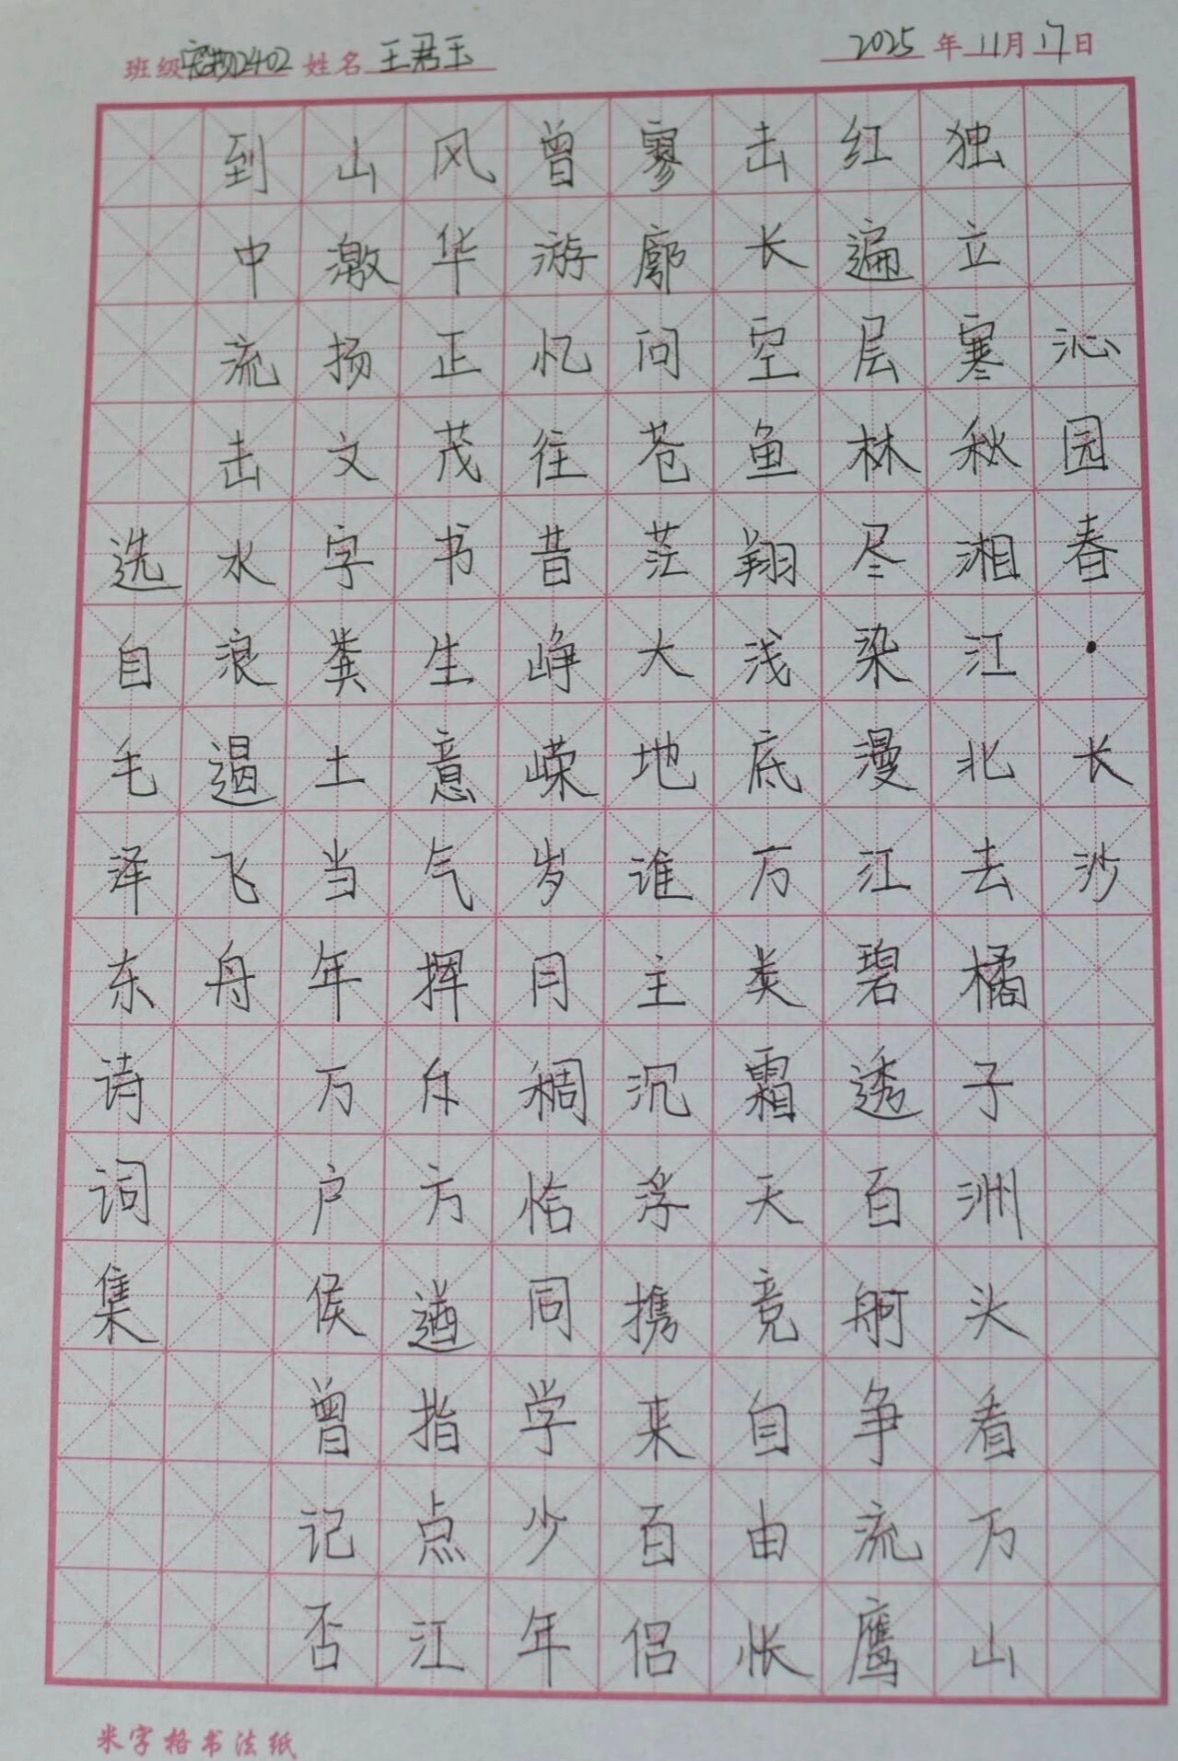 班级宠物2402 姓名王君玉 2025年11月17日
沁园春·长沙
独立寒秋湘江北去橘子洲头看万山
红遍层林尽染漫江碧透百舸争流鹰
击长空鱼翔浅底万类霜天竞自由怅
寥廓问苍茫大地谁主沉浮携来百侣
曾游忆往昔峥嵘岁月稠恰同学少年
风华正茂书生意气挥斥方遒指点江
山激扬文字粪土当年万户侯曾记否
到中流击水浪遏飞舟
选自毛泽东诗词集
米字格书法纸